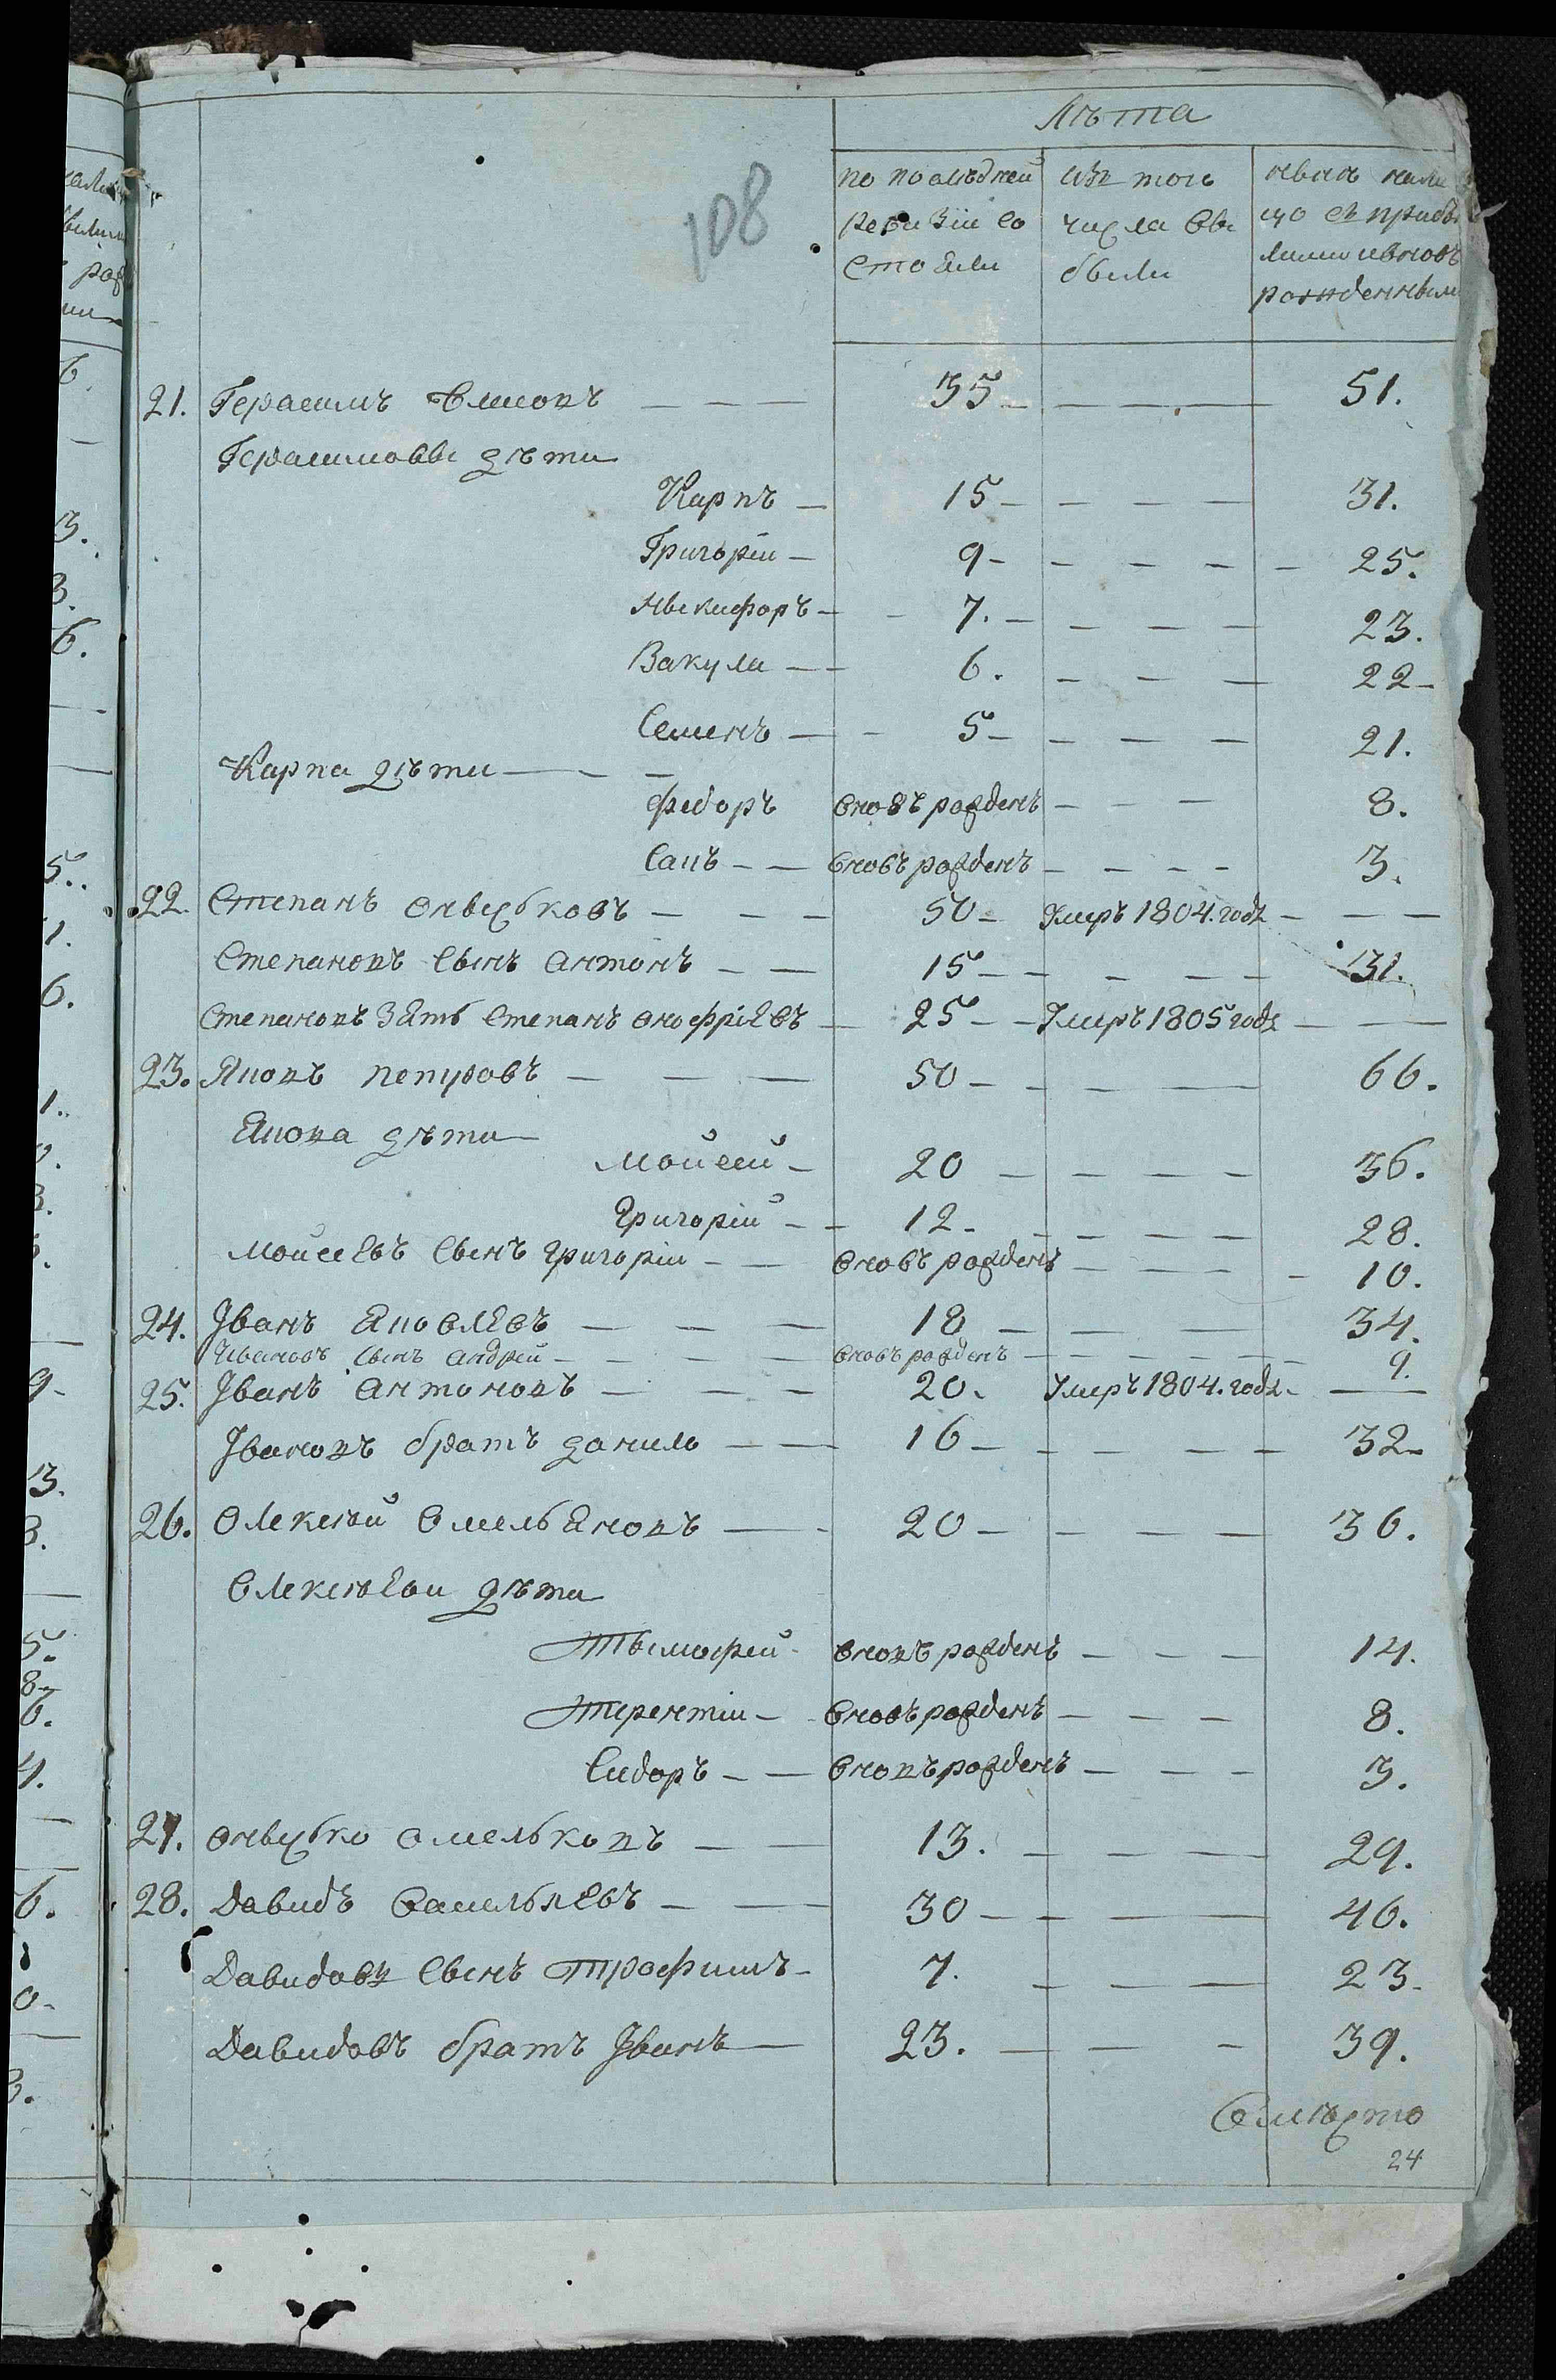 Лѣта
108
по последней ревизіи состояли
изъ того числа выбыли
нынѣ на лицо съ прибылими и вновь рожденными
21. Герасимъ — — — 35 — — — — 51.
Герасимовы дѣти
Карпъ — 15 — — — — 31.
Григоріи — 9 — — — — — 25.
Ныкифоръ — — 7. — — — — 23.
Вакула — — 6. — — — 22 —
Семенъ — — 5 — — — — 21.
Карпа дѣти — — —
Федоръ вновъ рожденъ — — — 8.
Сапъ — — вновъ рожденъ — — — — 3.
22. Степанъ Оныськовъ — — — 50 — Умеръ 1804. года — — —
Степановъ сынъ Антонъ — — 15 — — — — — 31.
Степановъ зять Степанъ Онофріевъ — 25 — — Умеръ 1805 года — —
23. Яковъ Петровъ — — — 50 — — — — 66.
Якова дѣти —
Мойсей — 20 — — — — 36.
Григорій — — 12 — — — — — 28.
Мойсеевъ сынъ Григоріи — — вновъ рожденъ — — — — 10.
24. Іванъ Яковлевъ — — — 18 — — — 34.
Ивановъ сынъ Андрей — — — — — вновъ рожденъ — — — — — 9.
25. Іванъ Антоновъ — — — 20. Умеръ 1804. года — —
Івановъ братъ Данило — — 16 — — — — — 32 —
26. Олексѣй Омельяновъ — — 20 — — — — 36.
Олексѣеви дѣти
Тымофей — вновъ рожденъ — — — 14.
Терентіи — вновъ рожденъ — — — 8.
Сидоръ — — вновъ рожденъ — — — 3.
27. Онысько Омельковъ — — 13. — — — — 29.
28. Давидъ Васильевъ — — 30 — — — — 46.
Давидовъ сынъ Трофимъ — 7. — — — 23.
Давидовъ братъ Іванъ — 23. — — — 39.
Вмѣсто
24